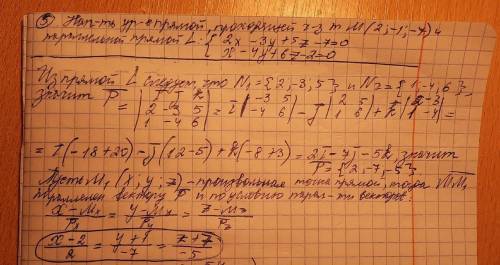 ⑤ Нап-ть ур-е прямой, проходящей ч-з т. M(2;-1;-7) и
параллельной прямой L: { 2x-3y+5z-7=0
x-4y+6z-2=0
Из прямой L следует, что N₁={2,-3,5} и N₂={1,-4,6},
значит P̄ = |i j k; 2 -3 5; 1 -4 6| = ī|-3 5; -4 6| - j̄|2 5; 1 6| + k̄|2 -3; 1 -4| =
= ī(-18+20) - j̄(12-5) + k̄(-8+3) = 2ī-7j̄-5k̄ значит
P̄={2,-7,-5}.
Пусть M₁(x; y; z) - произвольная точка прямой, тогда M̄M₁
параллелен вектору P̄ и по условию парал-ти векторов:
x-Mₓ/P₁ = y-Mᵧ/Pᵧ = z-M_z/P₃
x-2/2 = y+1/-7 = z+7/-5